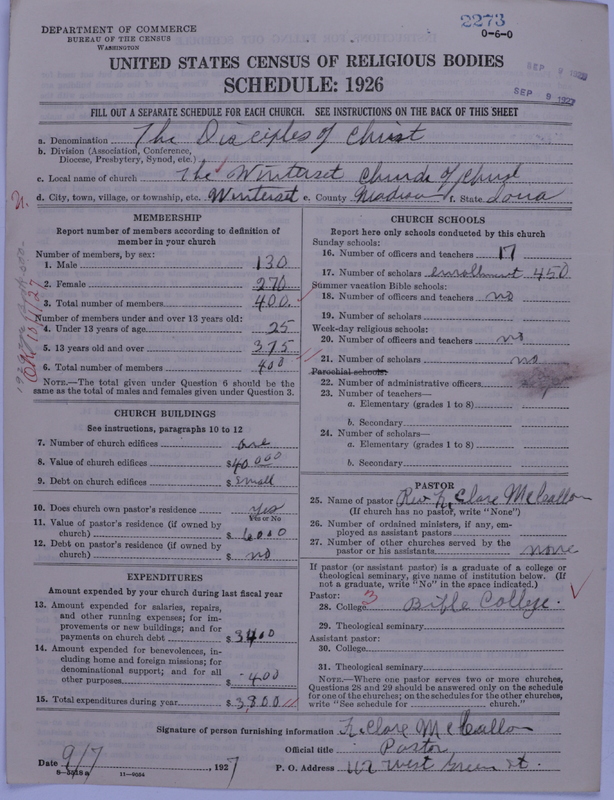 DEPARTMENT OF COMMERCE
BUREAU OF THE CENSUS
WASHINGTON
2273
0-6-0
UNITED STATES CENSUS OF RELIGIOUS BODIES
SCHEDULE: 1926
SEP 9 1927
SEP 9 1927
FILL OUT A SEPARATE SCHEDULE FOR EACH CHURCH. SEE INSTRUCTIONS ON THE BACK OF THIS SHEET
a. Denomination The Disciples of Christ
b. Division (Association, Conference, Diocese, Presbytery, Synod, etc.)
c. Local name of church The Winterset Church of Christ
d. City, town, village, or township, etc. Winterset e. County Madison f. State Iowa
MEMBERSHIP
Report number of members according to definition of
member in your church
Number of members, by sex:
1. Male 130
2. Female 270
3. Total number of members 400
Number of members under and over 13 years old:
4. Under 13 years of age 25
5. 13 years old and over 375
6. Total number of members 400
NOTE.—The total given under Question 6 should be the
same as the total of males and females given under Question 3.
CHURCH BUILDINGS
See instructions, paragraphs 10 to 12
7. Number of church edifices one
8. Value of church edifices $40000
9. Debt on church edifices $ Small
10. Does church own pastor's residence? yes
Yes or No
11. Value of pastor's residence (if owned by
church) $ 6000
12. Debt on pastor's residence (if owned by
church) $ no
EXPENDITURES
Amount expended by your church during last fiscal year
13. Amount expended for salaries, repairs,
and other running expenses; for im-
provements or new buildings; and for
payments on church debt $ 3400
14. Amount expended for benevolences, in-
cluding home and foreign missions; for
denominational support; and for all
other purposes $ 400
15. Total expenditures during year $ 3,800
CHURCH SCHOOLS
Report here only schools conducted by this church
Sunday schools:
16. Number of officers and teachers 17
17. Number of scholars enrollment 450
Summer vacation Bible schools:
18. Number of officers and teachers no
19. Number of scholars
Week-day religious schools:
20. Number of officers and teachers no
21. Number of scholars no
Parochial schools:
22. Number of administrative officers
23. Number of teachers—
a. Elementary (grades 1 to 8)
b. Secondary
24. Number of scholars—
a. Elementary (grades 1 to 8)
b. Secondary
PASTOR
25. Name of pastor Rev. Clare
(If church has no pastor, write "None")
26. Number of ordained ministers, if any, em-
ployed as assistant pastors
27. Number of other churches served by the
pastor or his assistants none
If pastor (or assistant pastor) is a graduate of a college or
theological seminary, give name of institution below. (If
not a graduate, write "No" in the space indicated.)
Pastor:
28. College 3 Bible College.
29. Theological seminary
Assistant pastor:
30. College
31. Theological seminary
NOTE.—Where one pastor serves two or more churches,
Questions 28 and 29 should be answered only on the schedule
for one of the churches; on the schedules for the other churches,
write "See schedule for church."
Signature of person furnishing information Clare
Official title Pastor
Date 9/7, 1927 P. O. Address 112 West Green St.
8-5318 a 11-9034